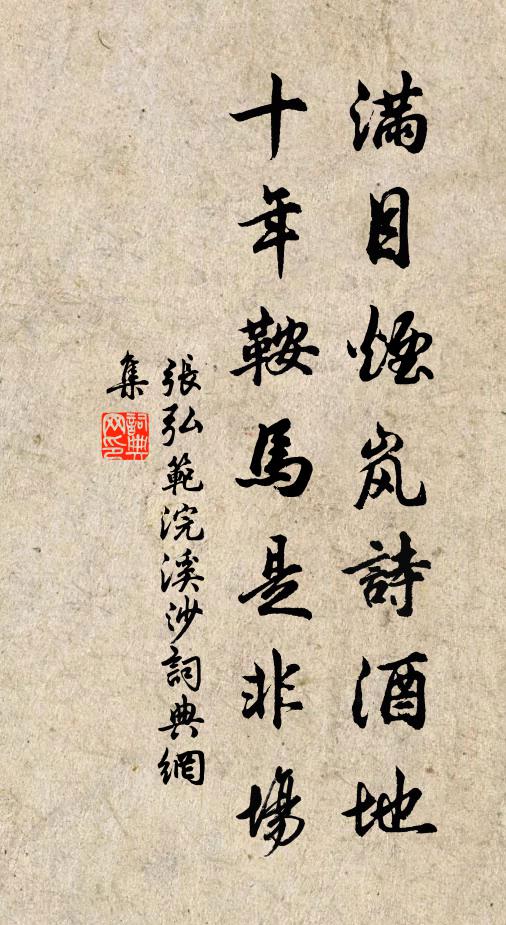 滿目煙岚詩酒地
十年鞍馬是非場
張弘範浣溪沙詞典網
集
詞典網印